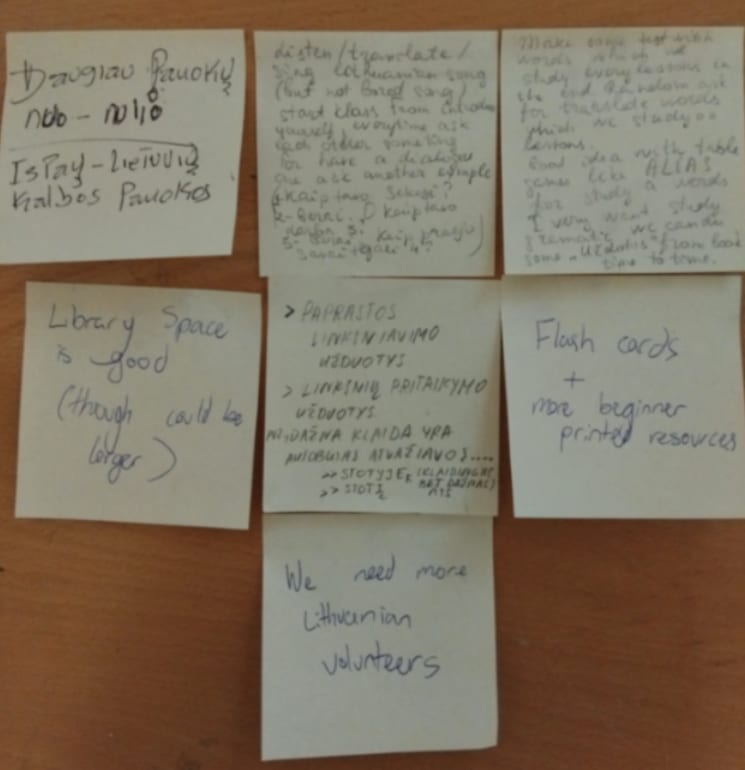 Daugiau Pauokų
nuo - nulio
Ispaų - Lietuvių
Kalbos Pauokos
Listen/translate/
Sing Lithuanian song
(but not bored song)
start klass from introdu
yourself, everytime ask
each other someking
for have a dialogue
one ask another example
(Kaip tavo sekasi?
Kaip tavo
Make some test with
words which we
study every lessons in
the end Random ask
for translate words
which we study on
lessons.
Good idea with table
games like ALIAS
for study a words
I very want study
gramatic we can do
some "Užduotis" from book
time to time.
Library Space
is good
(though could be
larger)
> PAPRASTOS
LINKSNIAVIMO
UŽDUOTYS
> LINKSNIŲ PRITAIKYMO
UŽDUOTYS.
DAŽNA KLAIDA YRA
AUTOBUSAS ATVAŽIAVO Į....
>> STOTYJE, (KLAIDINGAS
BET DAŽNAS)
>> STOTĮ
Flash cards
+
more beginner
printed resources
We need more
Lithuanian
volunteers